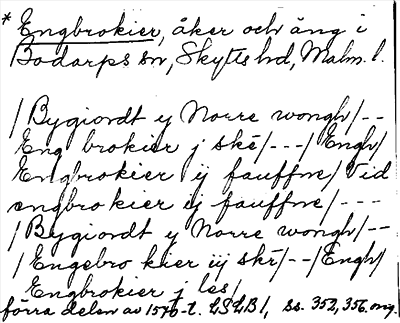 * Engbrokier, åker och äng i
Bodarps sn, Skytts hd, Malm. l.
/Bygiordt y Norre wongh/--
Eng brokier j ske/---/Engh/
Engbrokier ij fauffne/Vid
engbrokier ij fauffne/---
/Bygiordt y Norre wongh/--
/Engebro kier iij skr/--/Engh/
Engbrokier j les/
förra delen av 1570-t. LSLB1, ss. 352, 356.